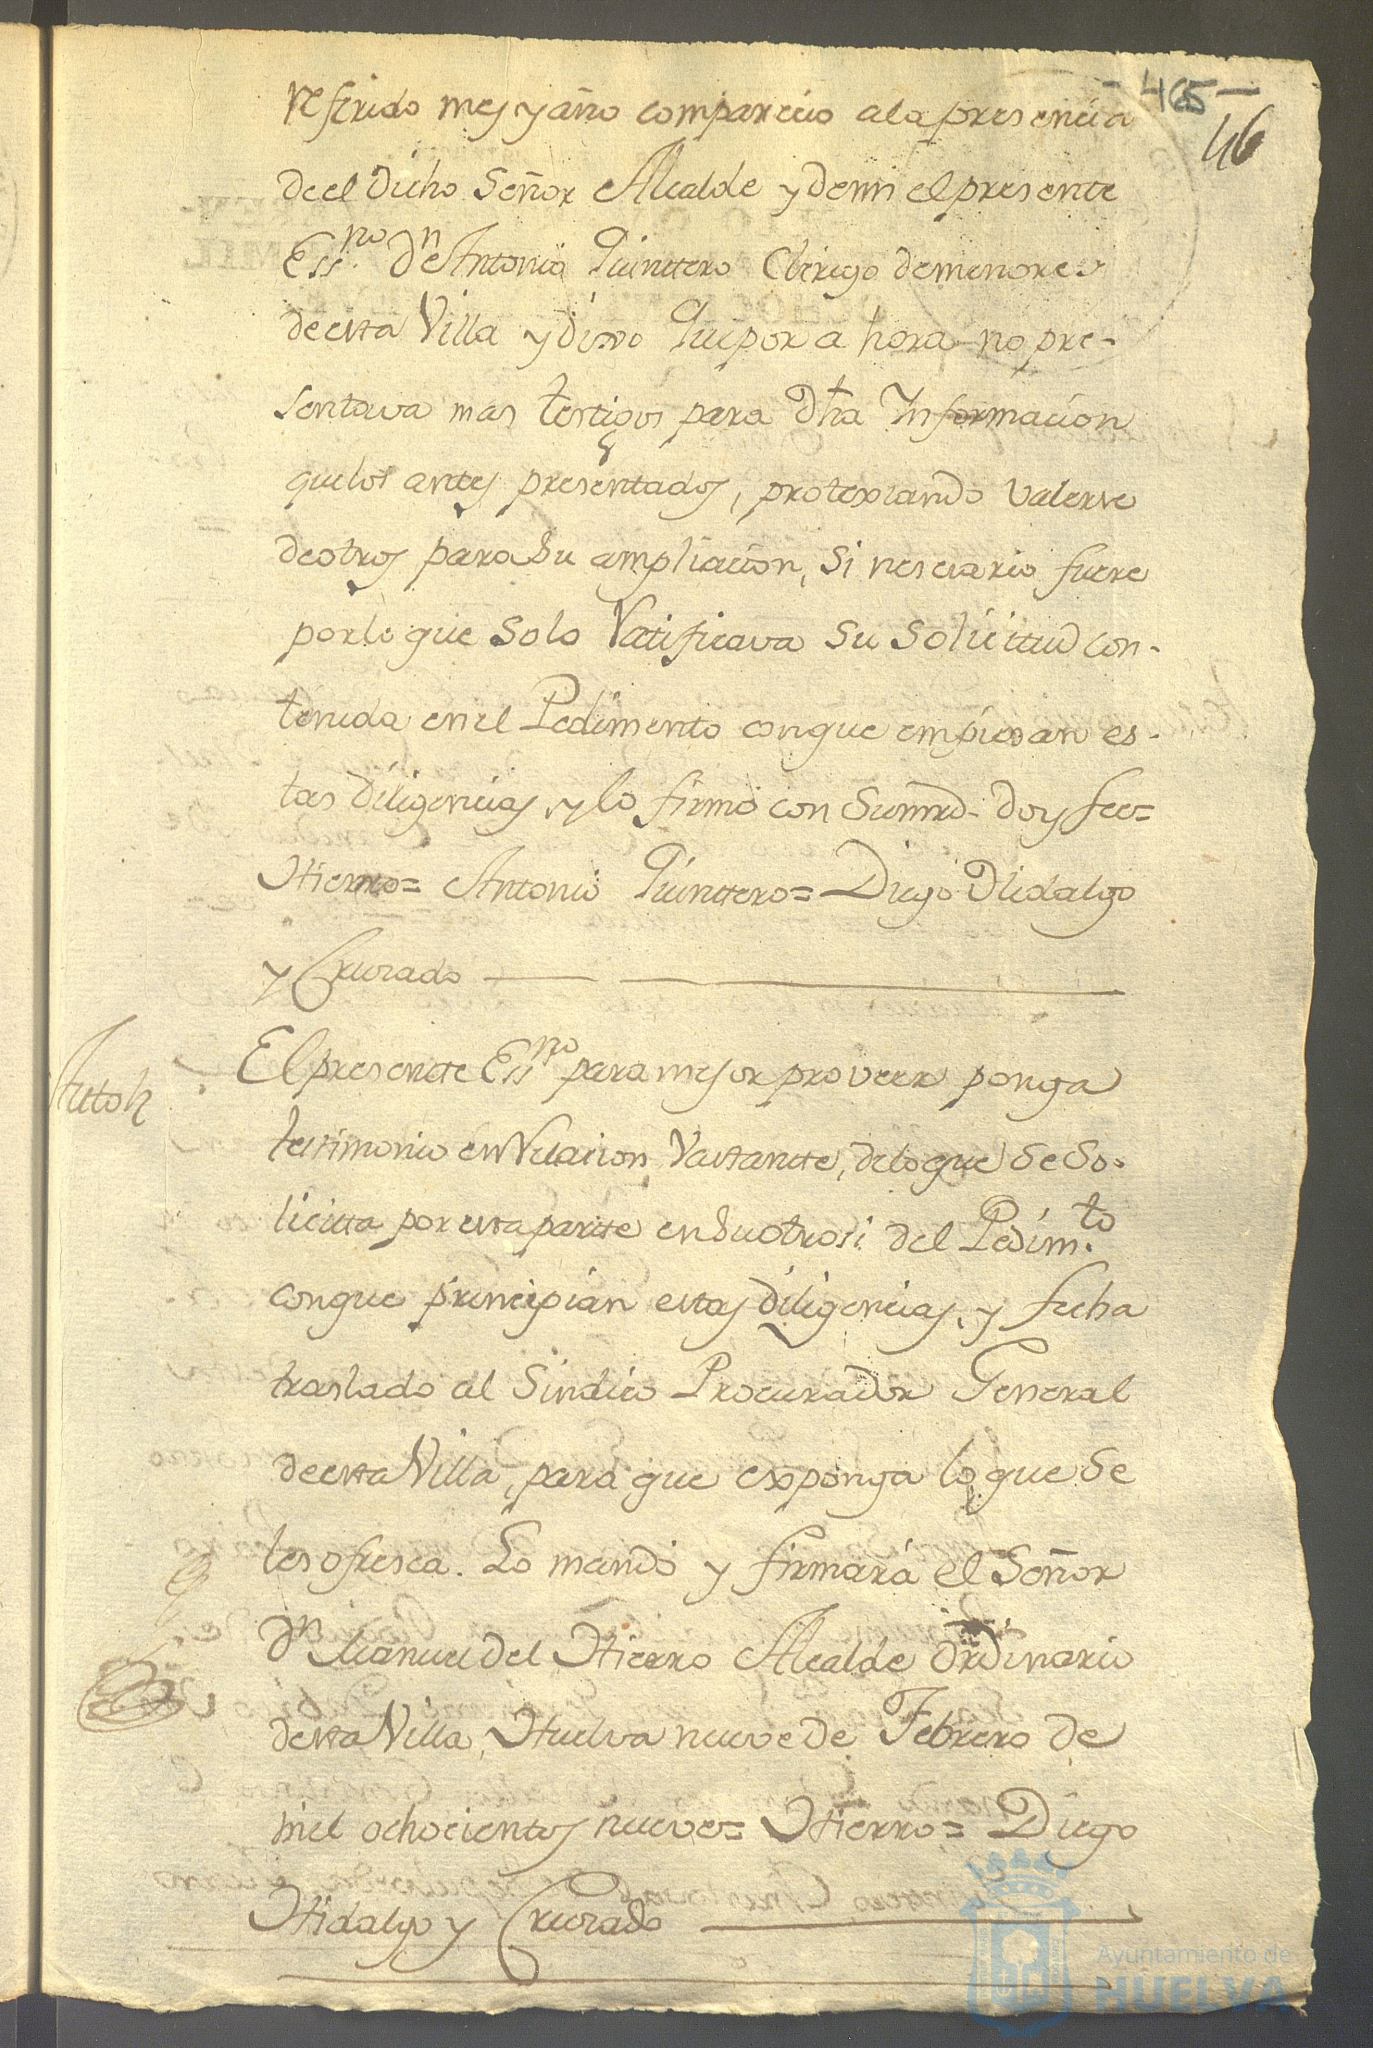 - 465 -
46
referido mes y año comparecio a la presencia
de el Dicho Señor Alcalde y demi el presente
Essno. Dn Antonio Quinttero Clerigo de menores
de esta Villa y dixo Que por a hora no pre-
sentava mas testigos para Dha Informacion
que los antes presentados, protextando valerse
de otros para su ampliacion, si nesesario fuere
por lo que solo Ratificava su solicitud con-
tenida en el Pedimento con que empiesan es-
tas diligencias, y lo firmó con Sumrd. doy fee=
Hierro= Antonio Quinttero= Diego Hidalgo
y Crusado
Auto
El presentte Essno para mejor proveer ponga
testimonio en Relacion Vastantte, de lo que se so-
licitta por esta partte en su otrosi del Pedim.to
con que principian estas diligencias, y fecha
traslado al Sindico Procurador General
de esta Villa, para que exponga lo que se
les ofresca. Lo mandó y firmará el Señor
Dn Manuel del Hierro Alcalde Ordinario
desta Villa, Huelva nueve de Febrero de
mil ochocientos nueve= Hierro= Diego
Hidalgo y Crusado
Ayuntamiento de
HUELVA